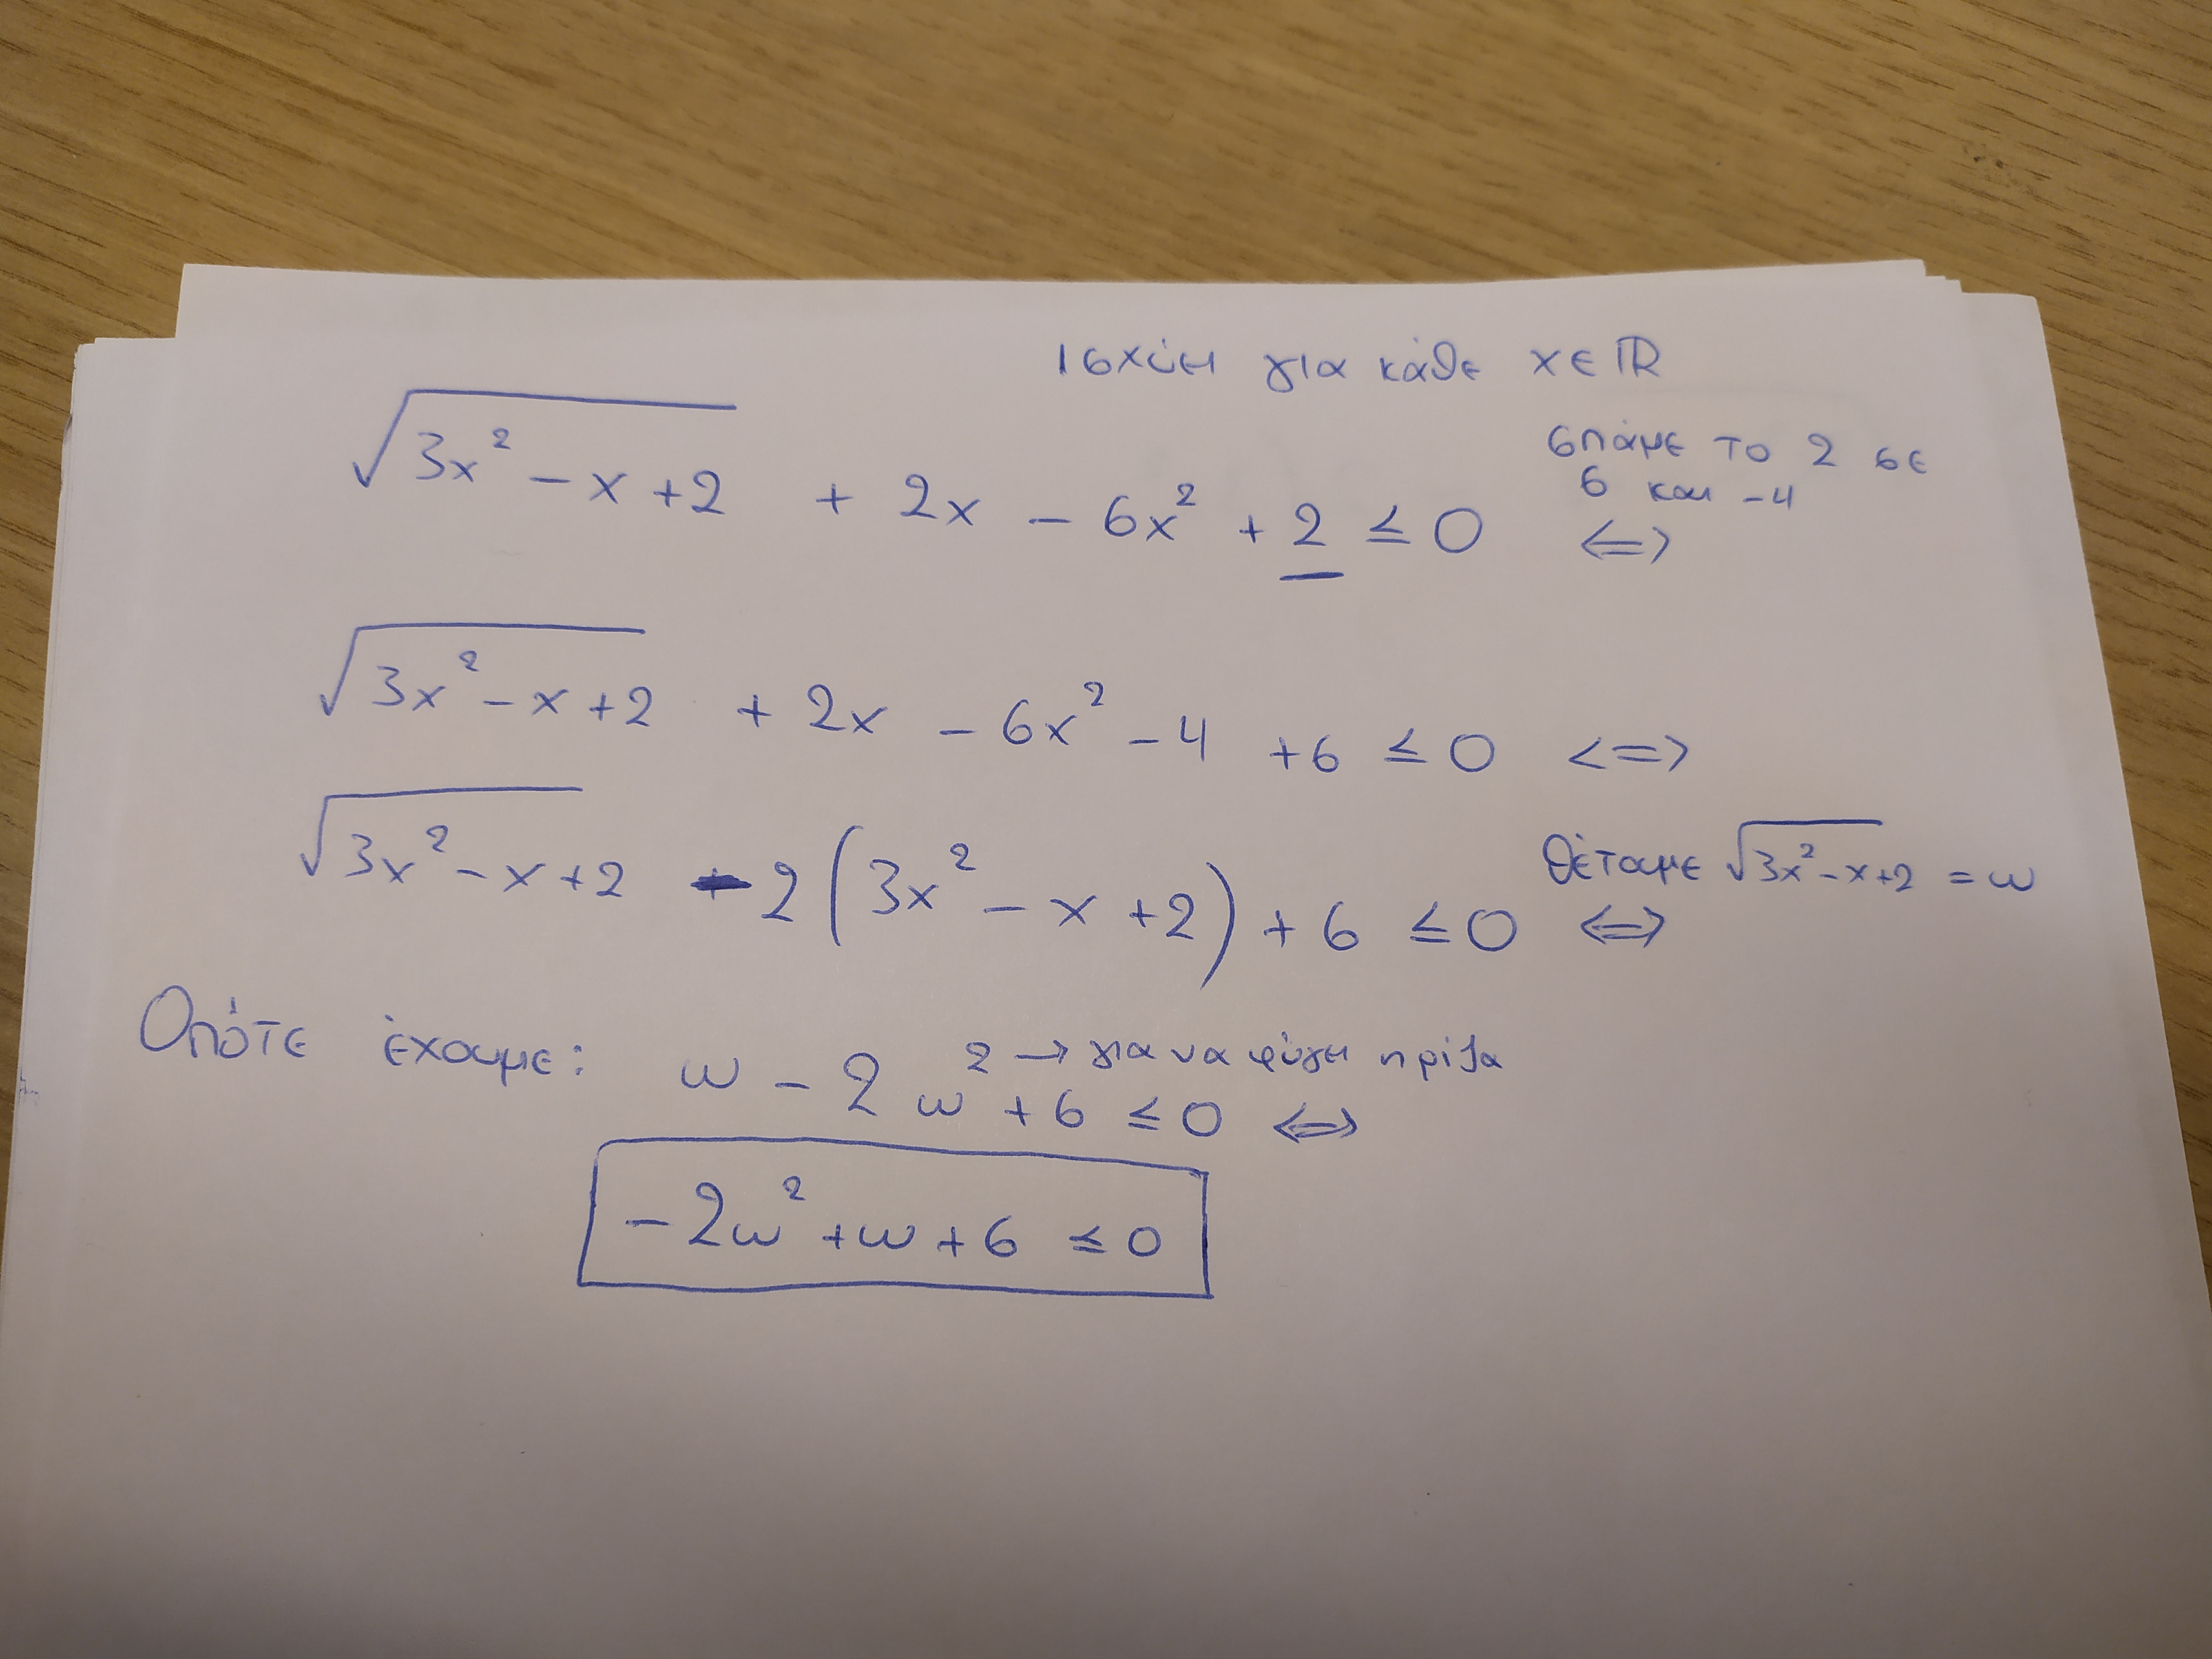 ισχύει για κάθε x ∈ ℝ
√(3x² - x + 2) + 2x - 6x² + 2 ≤ 0 σπάμε το 2 σε
6 και -4
⇔
√(3x² - x + 2) + 2x - 6x² - 4 + 6 ≤ 0 <=>
√(3x² - x + 2) - 2(3x² - x + 2) + 6 ≤ 0 θέτουμε √(3x² - x + 2) = ω
⇔
Οπότε έχουμε: ω - 2ω² + 6 ≤ 0 ⇔
→ για να φύγει η ρίζα
-2ω² + ω + 6 ≤ 0